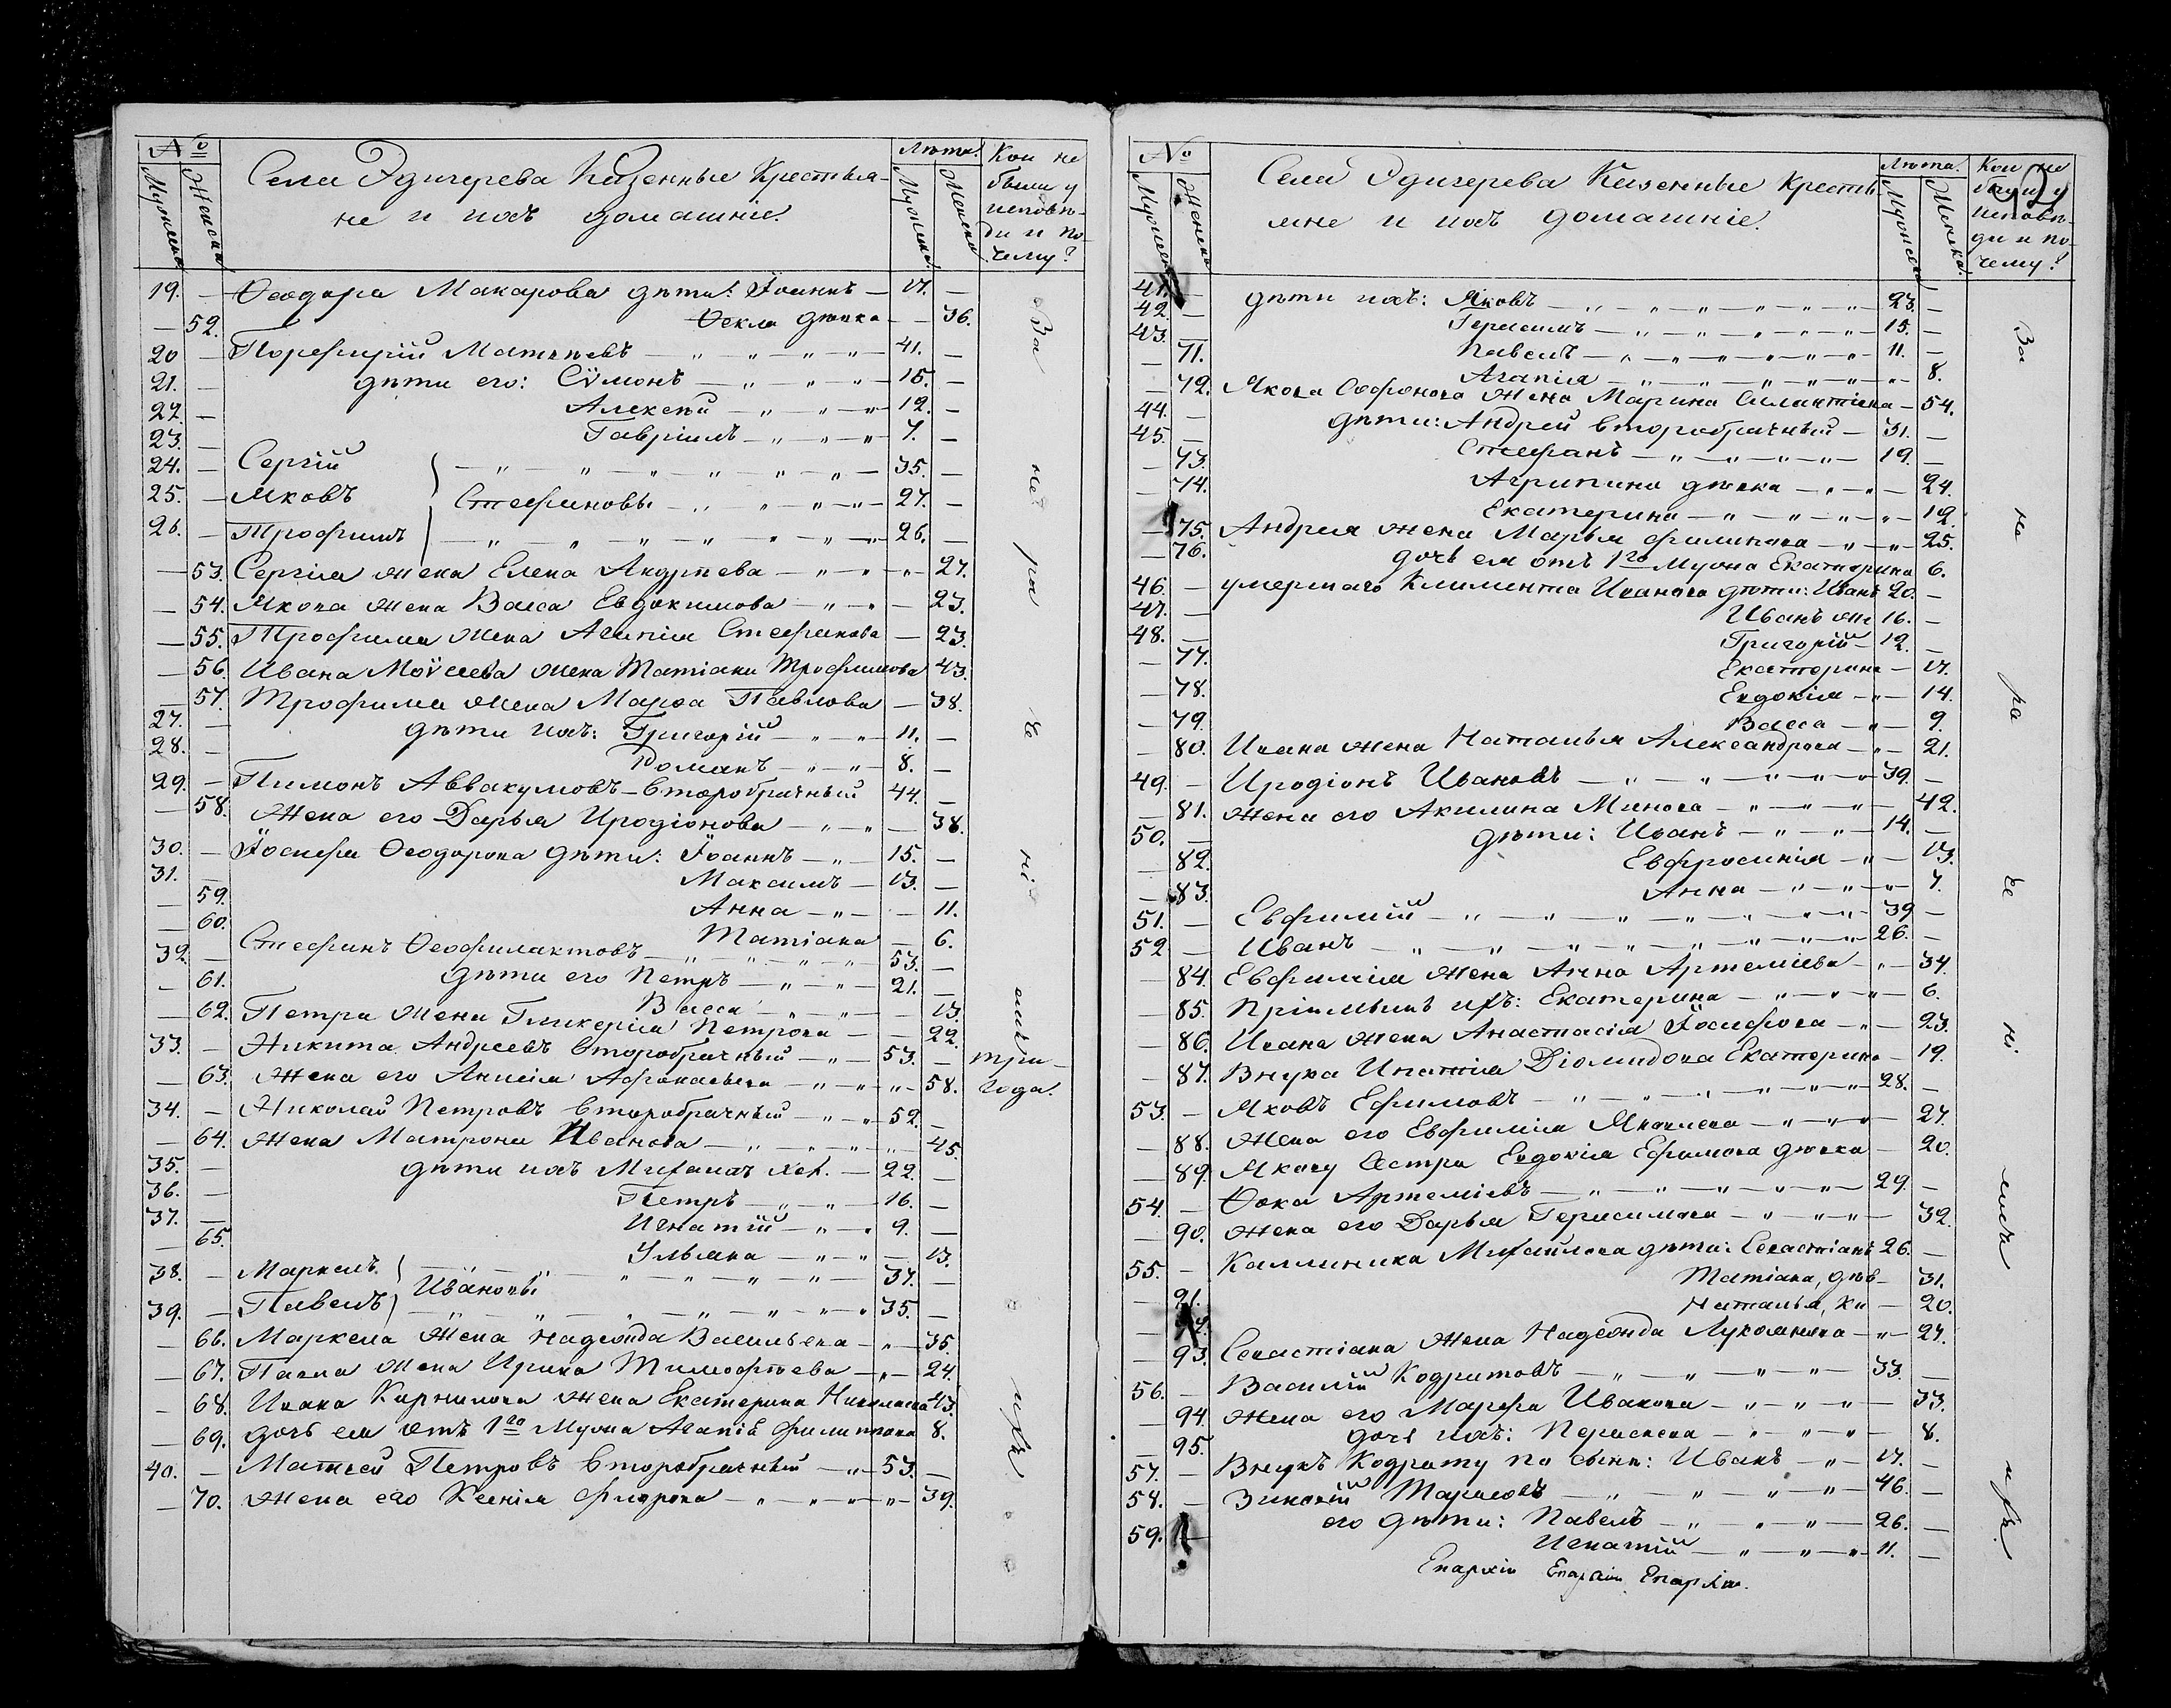 №
Мужеска
Женска
Села Эдигерева Казенные Крестья-
не и ихъ домашніе.
Лѣта.
Мужеска
Женска
Кои не
были у
исповѣ-
ди и по-
чему?
19. — Ѳеодора Макарова дѣти: Іоаннъ — 17. —
— 52. Ѳекла дѣвка — — 36.
20 — Порфирій Матвѣевъ — „ — „ — „ — „ — 41. —
21. — дѣти его: Сѵмонъ — „ — „ — „ — 15. —
22. — Алексѣй — „ — „ — „ 12. —
23. — Гавріилъ — „ — „ — „ 7. —
24. — Сергій — „ — „ — „ — „ — „ — „ — 35. —
25. — Яковъ } Стефановы — „ — „ — „ — „ — 27. —
26. — Трофимъ — „ — „ — „ — „ — „ — „ — 26. —
— 53. Сергія жена Елена Андрѣева — „ — „ — „ — 27.
— 54. Якова жена Васса Евдокимова — „ — „ — 23.
— 55. Трофима жена Агапія Стефанова — 23.
— 56. Ивана Моѵсеева жена Татіана Трофимова 43.
— 57. Трофима жена Марѳа Павлова — 38.
27. — дѣти ихъ: Григорій — „ — „ — 11. —
28. — Романъ — „ — „ — 8. —
29. — Пимонъ Аввакумовъ — второбрачный 44. —
— 58. Жена его Дарья Иродіонова — „ — „ — 38.
30. — Іосифа Ѳеодорова дѣти: Іоаннъ — „ — 15. —
31. — Максимъ — 13. —
— 59. Анна — „ — — 11.
— 60. Татіана — 6.
32. — Стефанъ Ѳеофилактовъ — „ — „ — „ — „ — 53. —
— 61. дѣти его Петръ — „ — „ — 21. —
Васса — „ — „ — 13.
— 62. Петра жена Гликерія Петрова — — 22.
33. — Никита Андреевъ второбрачный — „ — 53. —
— 63. Жена его Анисія Аѳанасьева — „ — „ — „ — 58.
34. — Николай Петровъ второбрачный — „ — „ 52. —
— 64. Жена Матрона Иванова — „ — „ — „ — „ — 45.
35. — дѣти ихъ Михаилъ хол. — 22. —
36. — Петръ — „ — „ — 16. —
37. — Игнатій — „ — „ 9. —
— 65. Ульяна — „ — „ — 13.
38. — Маркелъ } — „ — „ — „ — „ — „ — 37. —
Ивановы
39. — Павелъ — „ — „ — „ — „ — „ — „ 35. —
— 66. Маркела жена Надежда Васильева — „ — 35.
— 67. Павла жена Ирина Тимофѣева — „ — 24.
— 68. Ивана Карпилова жена Екатерина Николаева 43.
— 69. дочь ея отъ 1го мужа Агапія Филиппова 8.
40. — Матвей Петровъ второбрачный — „ — 53. —
— 70. жена его Ксенія Фирова — „ — „ — „ — „ — 39.
За
не
ра
че
ні
емъ
три
года.
№
Мужеска
Женска
Села Эдигерева Казенные Кресть
яне и ихъ домашніе.
Лѣта.
Мужеска
Женска.
Кои не
были у
исповѣ-
ди и по-
чему?
41. — дѣти ихъ: Яковъ — „ — „ — „ — „ — „ — „ — 23. —
42. — Герасимъ — „ — „ — „ — „ — „ — 15. —
43. — Павелъ — „ — „ — „ — „ — „ — 11. —
— 71. Агапія — „ — „ — „ — „ — „ — 8.
— 72. Якова Софонова жена Марина Силантіева — 54.
44. — дѣти: Андрей второбрачный — 31. —
45. — Стефанъ — „ — „ — „ — „ — 19. —
— 73. Агрипина дѣвка — „ — „ — 24.
— 74. Екатерина — „ — „ — „ — „ — 12.
— 75. Андрея жена Марья Филипова — „ — „ — 25.
— 76. дочь ея отъ 1го мужа Екатерина 6.
46. — умершаго Климента Иванова дѣти: Иванъ 20. —
47. — Иванъ же 16. —
48. — Григорій — 12. —
— 77. Екатерина — 17.
— 78. Евдокія — „ — 14.
— 79. Васса — „ — 9.
— 80. Ивана жена Наталья Александрова — „ — 21.
49. — Иродіонъ Ивановъ — „ — „ — „ — „ — „ — 39. —
— 81. жена его Акилина Минова — „ — „ — „ — 42.
50. — дѣти: Иванъ — „ — „ — 14. —
— 82. Евфросинія — „ — 13.
— 83. Анна — „ — „ — „ — 7.
51. — Евфимій — „ — „ — „ — „ — „ — „ — „ — 39 —
52 — Иванъ — „ — „ — „ — „ — „ — „ — „ — 26. —
— 84. Евфимія жена Анна Артеміева — „ — 34.
— 85. Пріемышъ ихъ: Екатерина — „ — „ — „ — 6.
— 86. Ивана жена Анастасія Іосифова — „ — 23.
— 87. Внука Ипатія Діомидова Екатерина — 19.
53. — Яковъ Ефимовъ — „ — „ — „ — „ — „ — „ — 28. —
— 88. Жена его Евфимія Яковлева — „ — „ — „ — 27.
— 89. Якову сестра Евдокія Ефимова дѣвка — 20.
54. — Ѳока Артеміевъ — „ — „ — „ — „ — „ — 29. —
— 90. жена его Дарья Герасимова — „ — „ — „ — 32.
55. — Каллиника Михайлова дѣти: Севастіанъ 26. —
— 91. Татіана, дѣв — 31.
Наталья, — 20.
— 93. Севастіана жена Надежда Лукоянова — „ — 27.
56. — Василій Кодратовъ — „ — „ — „ — „ — 33. —
— 94. жена его Марфа Иванова — „ — „ — „ — 33.
— 95. дочь ихъ: Параскева — „ — „ — „ — 8.
57. — Внукъ Кодрату по сынѣ: Иванъ — „ — 17. —
58. — Зиновій Тарасовъ — „ — „ — „ — „ — 46. —
59. — его дѣти: Павелъ — „ — „ — „ — 26. —
Игнатій — „ — „ — „ — 11. —
Епархіи Епархіи Епархіи.
За
не
ра
че
ні
емъ